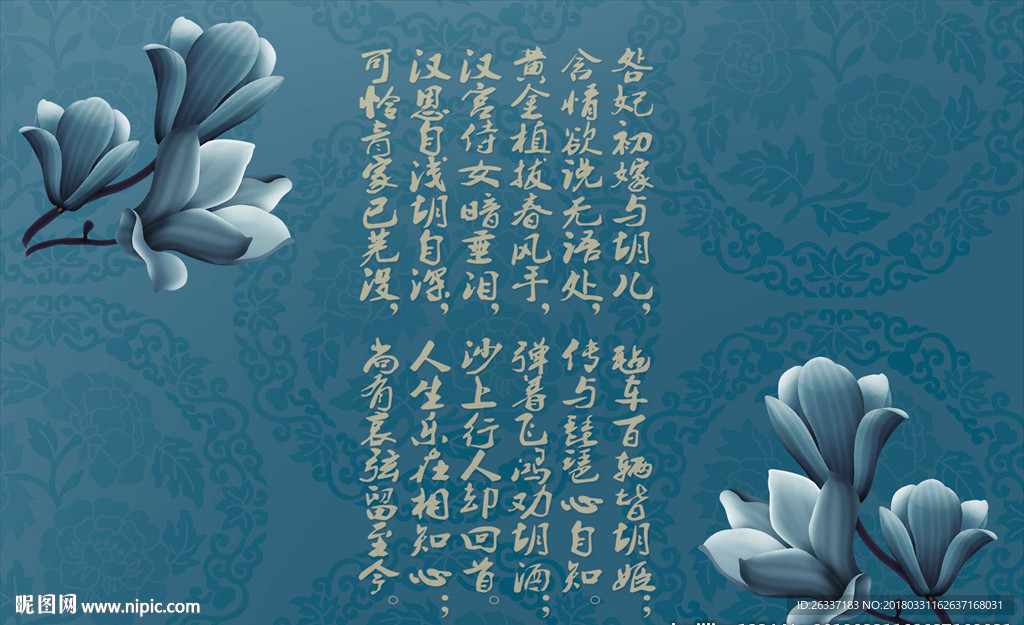 妃初嫁与胡儿，毡车百辆皆胡姬；
含情欲说无语处，传与琵琶心自知。
黄金植拔春风手，弹着飞鸿劝胡酒；
汉宫侍女暗垂泪，沙上行人却回首。
汉恩自浅胡自深，人生乐在相知心；
可怜青家已芜没，尚有哀弦留至今。
昵图网 www.nipic.com
ID:26337183 NO:20180331162637168031